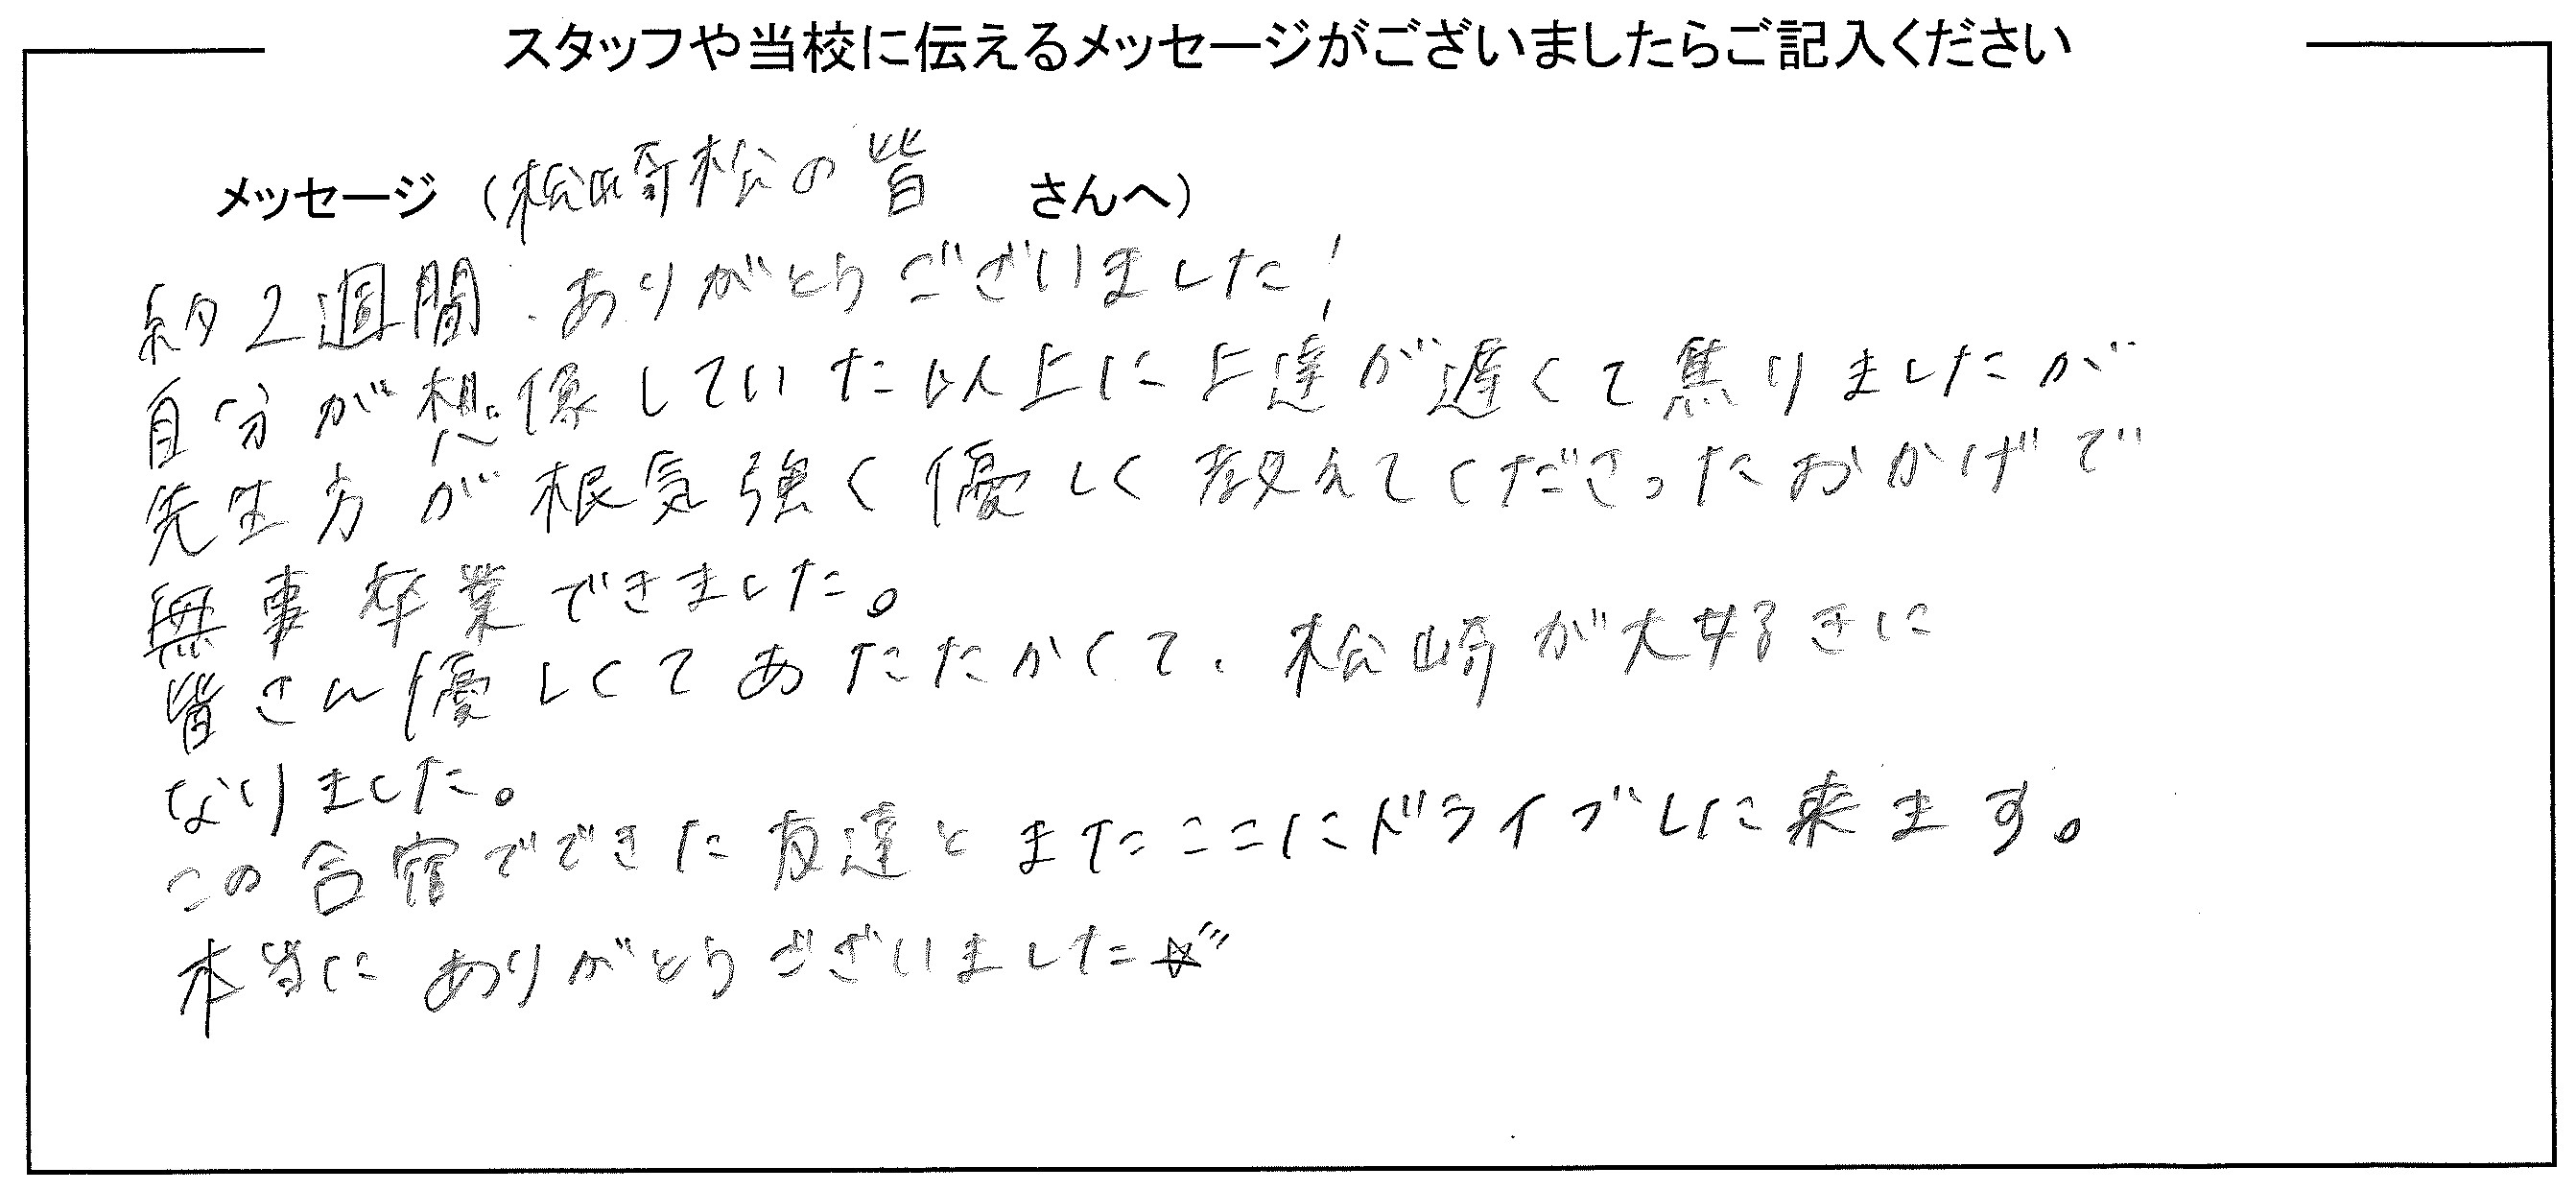 スタッフや当校に伝えるメッセージがございましたらご記入ください
メッセージ（松崎松の皆 さんへ）
約2週間、ありがとうございました!
自分が想像していた以上に上達が遅くて焦りましたが
先生方が根気強く優しく教えてくださったおかげで
無事卒業できました。
皆さん優しくてあたたかくて、松崎が大好きに
なりました。
この合宿でできた友達とまたここにドライブしに来ます。
本当にありがとうございました☆